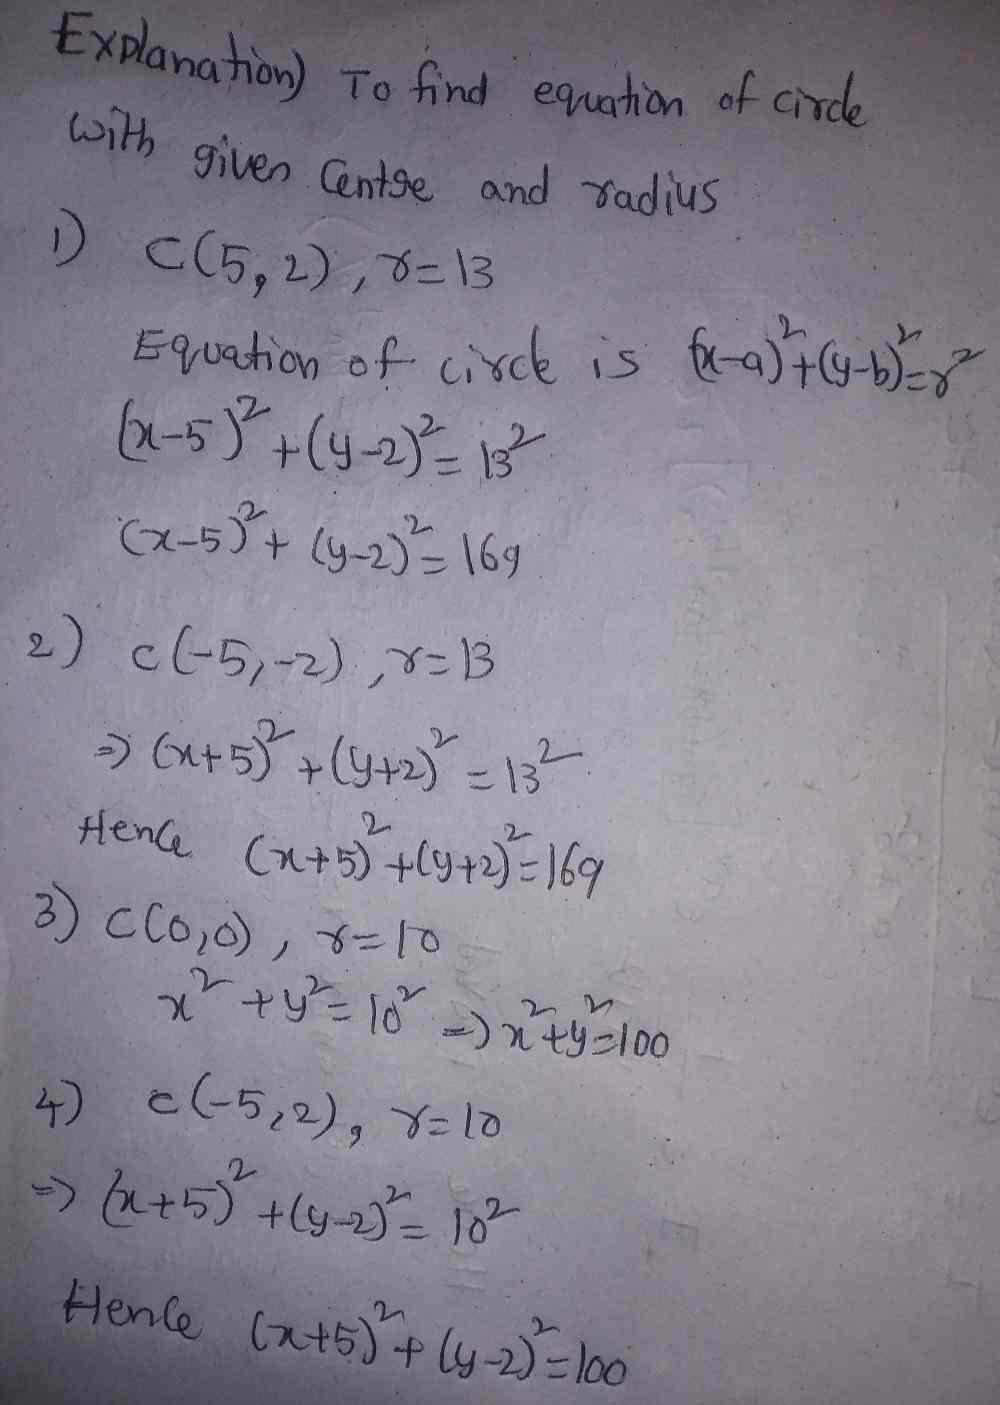 Explanation) To find equation of circle
with given Centre and radius
1) C(5,2), r=13
Equation of circle is (x-a)²+(y-b)²=r²
(x-5)²+(y-2)²=13²
(x-5)²+(y-2)²=169
2) c(-5,-2), r=13
⇒ (x+5)²+(y+2)²=13²
Hence (x+5)²+(y+2)²=169
3) C(0,0), r=10
x²+y²=10² ⇒ x²+y²=100
4) c(-5,2), r=10
⇒ (x+5)²+(y-2)²=10²
Hence (x+5)²+(y-2)²=100